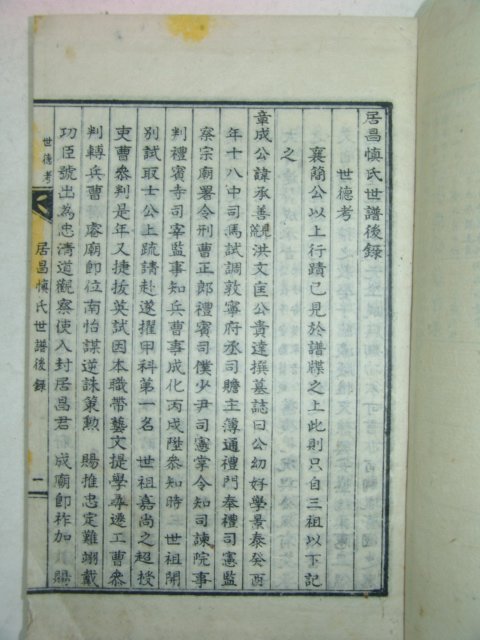 居昌慎氏世譜後錄
世德考
襄簡公以上行蹟已見於譜牒之上此則只自三祖以下記
之
章成公諱承善觀洪文匡公貴達撰墓誌曰公幼好學景泰癸酉
年十八中司馬試調敦寧府丞司贍主簿通禮門奉禮司憲監
察宗廟署令刑曹正郎禮賓司僕少尹司憲掌令知司諫院事
判禮賓寺司宰監事知兵曹事成化丙戌陞參知時 世祖開
別試取士公上疏請赴遂擢甲科第一名 世祖嘉尚之超授
吏曹參判是年又捷拔英試因本職帶藝文提學尋遷工曹參
判轉兵曹 睿廟即位南怡謀逆誅策勲 賜推忠定難翊戴
功臣號出為忠清道觀察使入封居昌君 成廟即祚加 賜
世德考
居昌慎氏世譜後錄
一